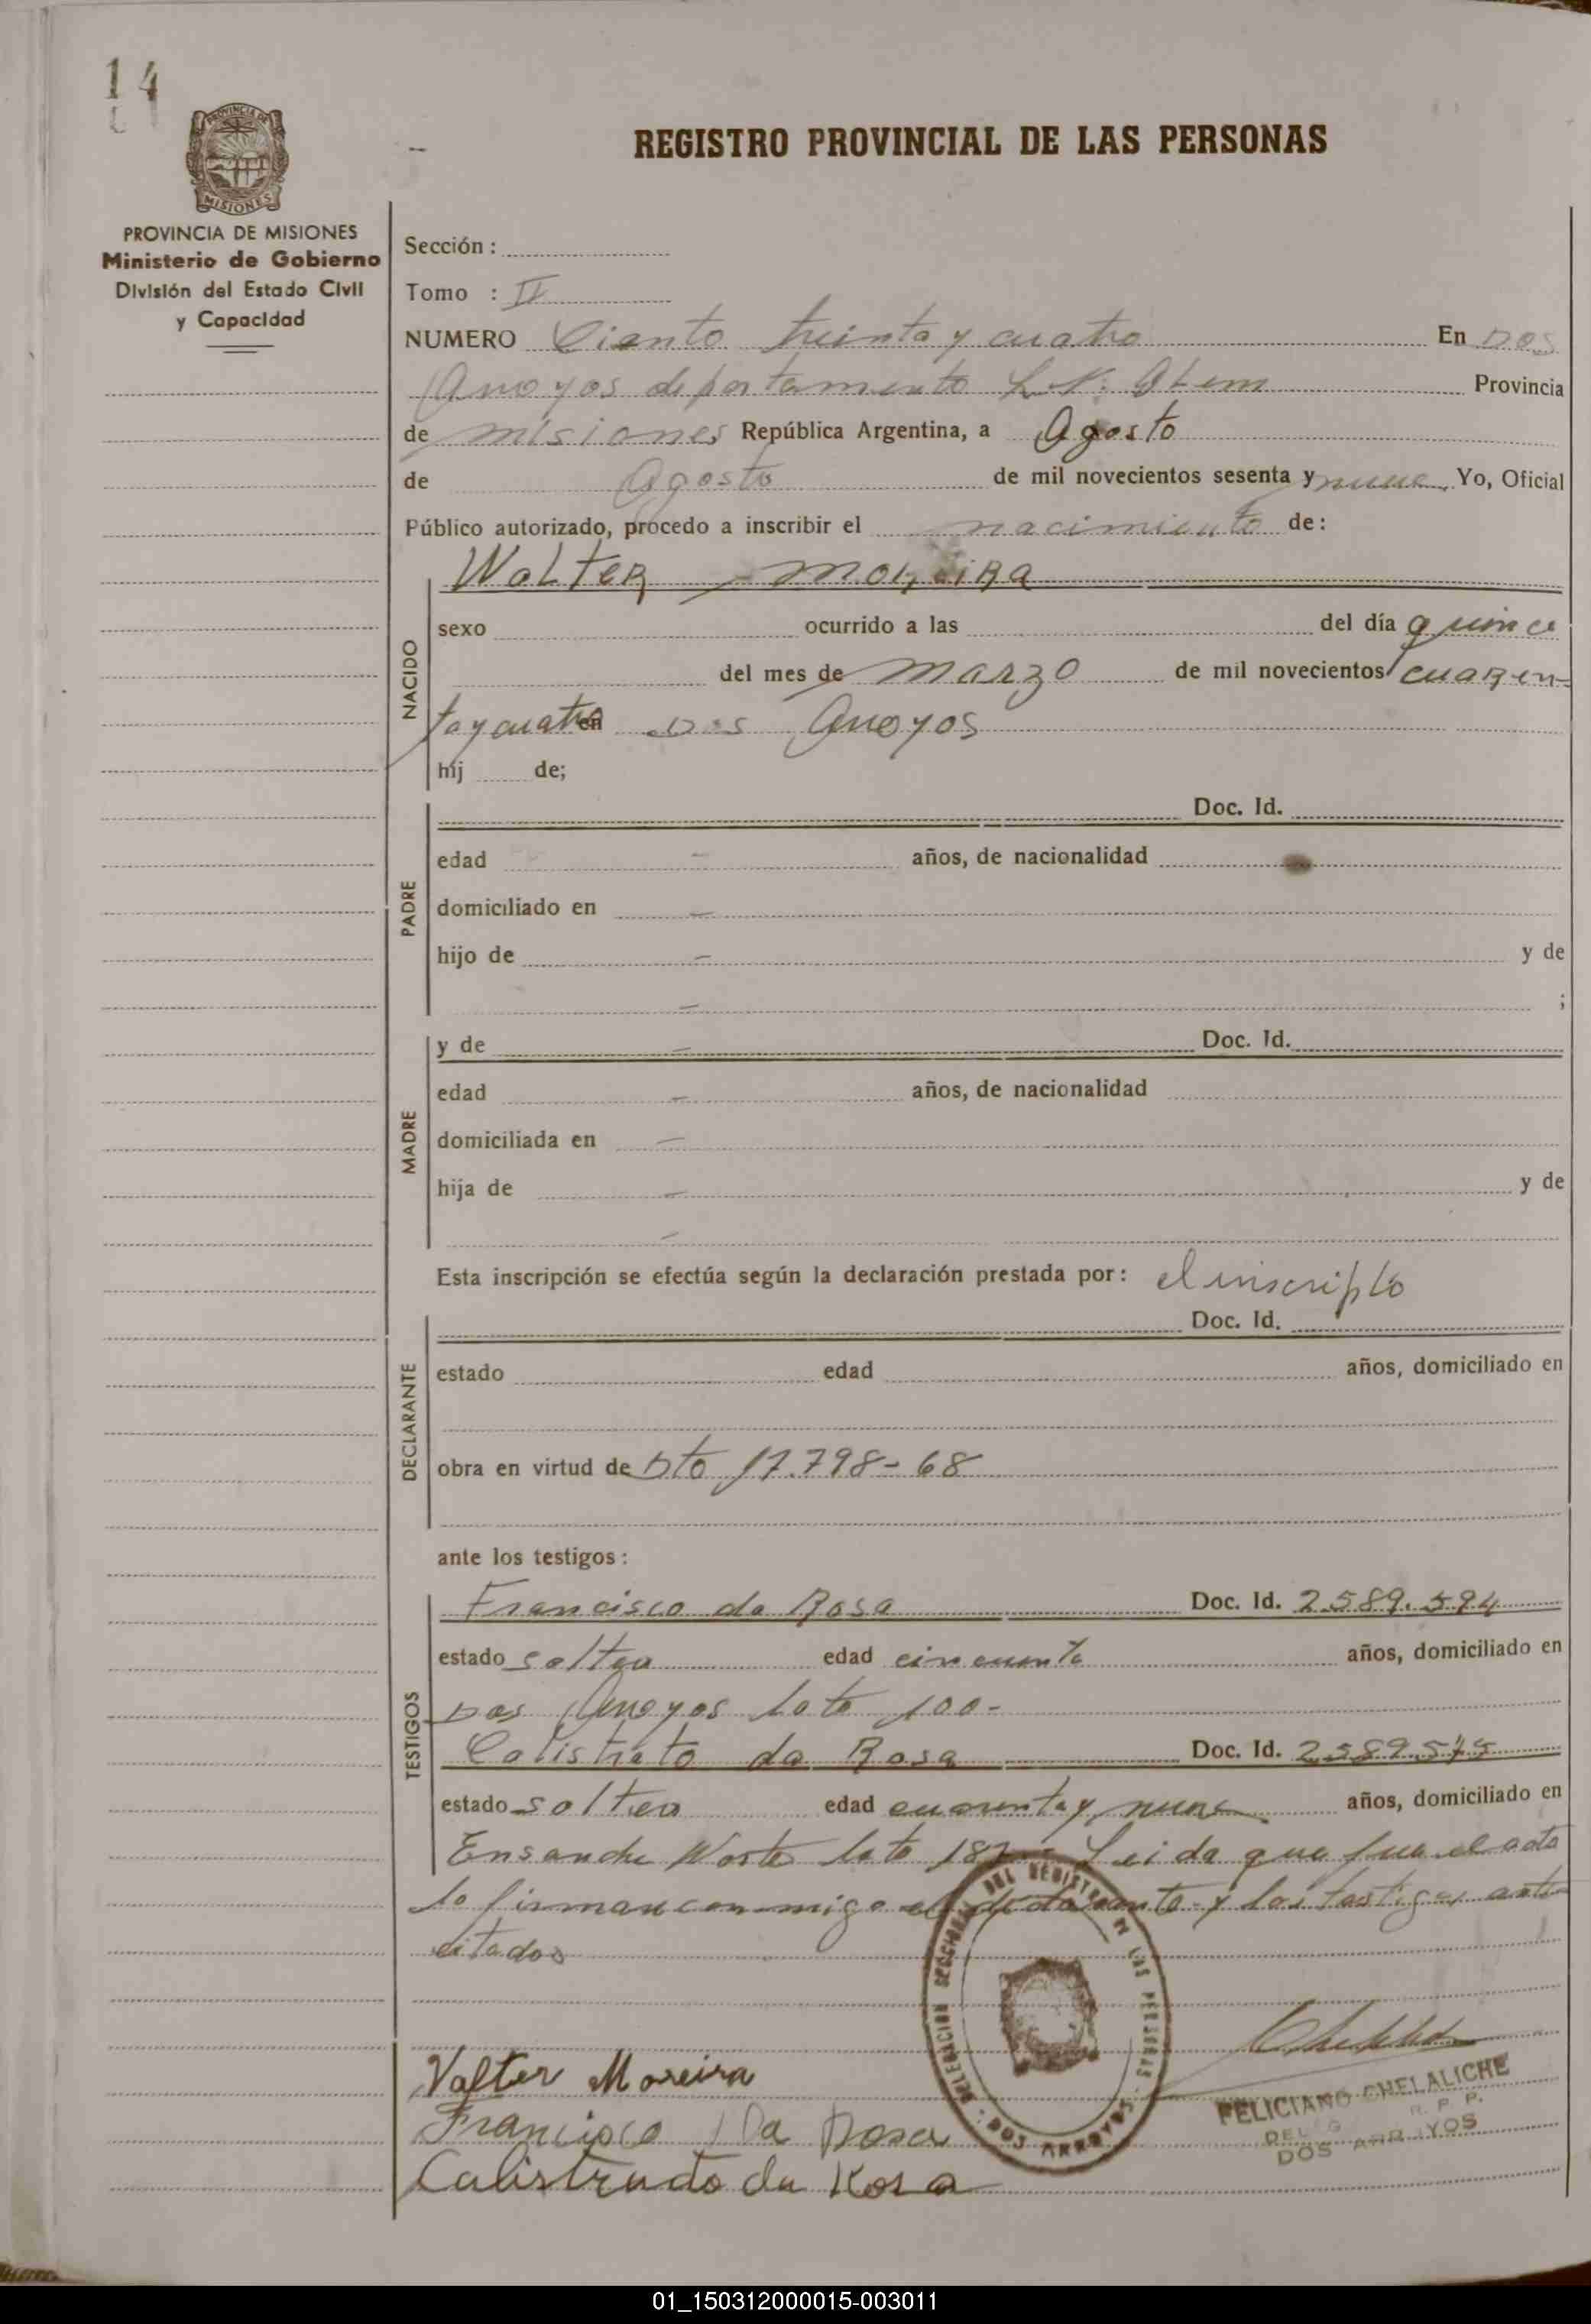 14
PROVINCIA DE
MISIONES
REGISTRO PROVINCIAL DE LAS PERSONAS
PROVINCIA DE MISIONES
Ministerio de Gobierno
División del Estado Civil
y Capacidad
Sección :
Tomo : II
NUMERO Ciento treinta y cuatro En Dos
Arroyos departamento L. N. Alem Provincia
de misiones República Argentina, a Agosto
de Agosto de mil novecientos sesenta y nueve Yo, Oficial
Público autorizado, procedo a inscribir el nacimiento de:
WalTER - MOREIRA
NACIDO
sexo ocurrido a las del día quince
del mes de MARZO de mil novecientos cuaren-
ta y cuatro en Dos Arroyos
hij de;
Doc. Id.
PADRE
edad - años, de nacionalidad
domiciliado en -
hijo de - y de
- ;
MADRE
y de - Doc. Id.
edad - años, de nacionalidad
domiciliada en -
hija de - y de
-
Esta inscripción se efectúa según la declaración prestada por: el inscripto
Doc. Id.
DECLARANTE
estado edad años, domiciliado en
obra en virtud de Dto 17.798-68
ante los testigos:
TESTIGOS
Francisco da Rosa Doc. Id. 2589.594
estado soltero edad cincuenta años, domiciliado en
Dos Arroyos lote 100-
Calistrato da Rosa Doc. Id. 2589.575
estado soltero edad cuarenta y nueve años, domiciliado en
Ensanche Norte lote Leida que fue el acta
lo firman conmigo el declarante y los testigos ante
citados
DELEGACION SECCIONAL DEL REGISTRO DE LAS PERSONAS
DOS ARROYOS
Valter Moreira
Francisco Da Rosa
Calistrato da Rosa
FELICIANO CHELALICHE
R. P. P.
DOS ARROYOS
01_150312000015-003011